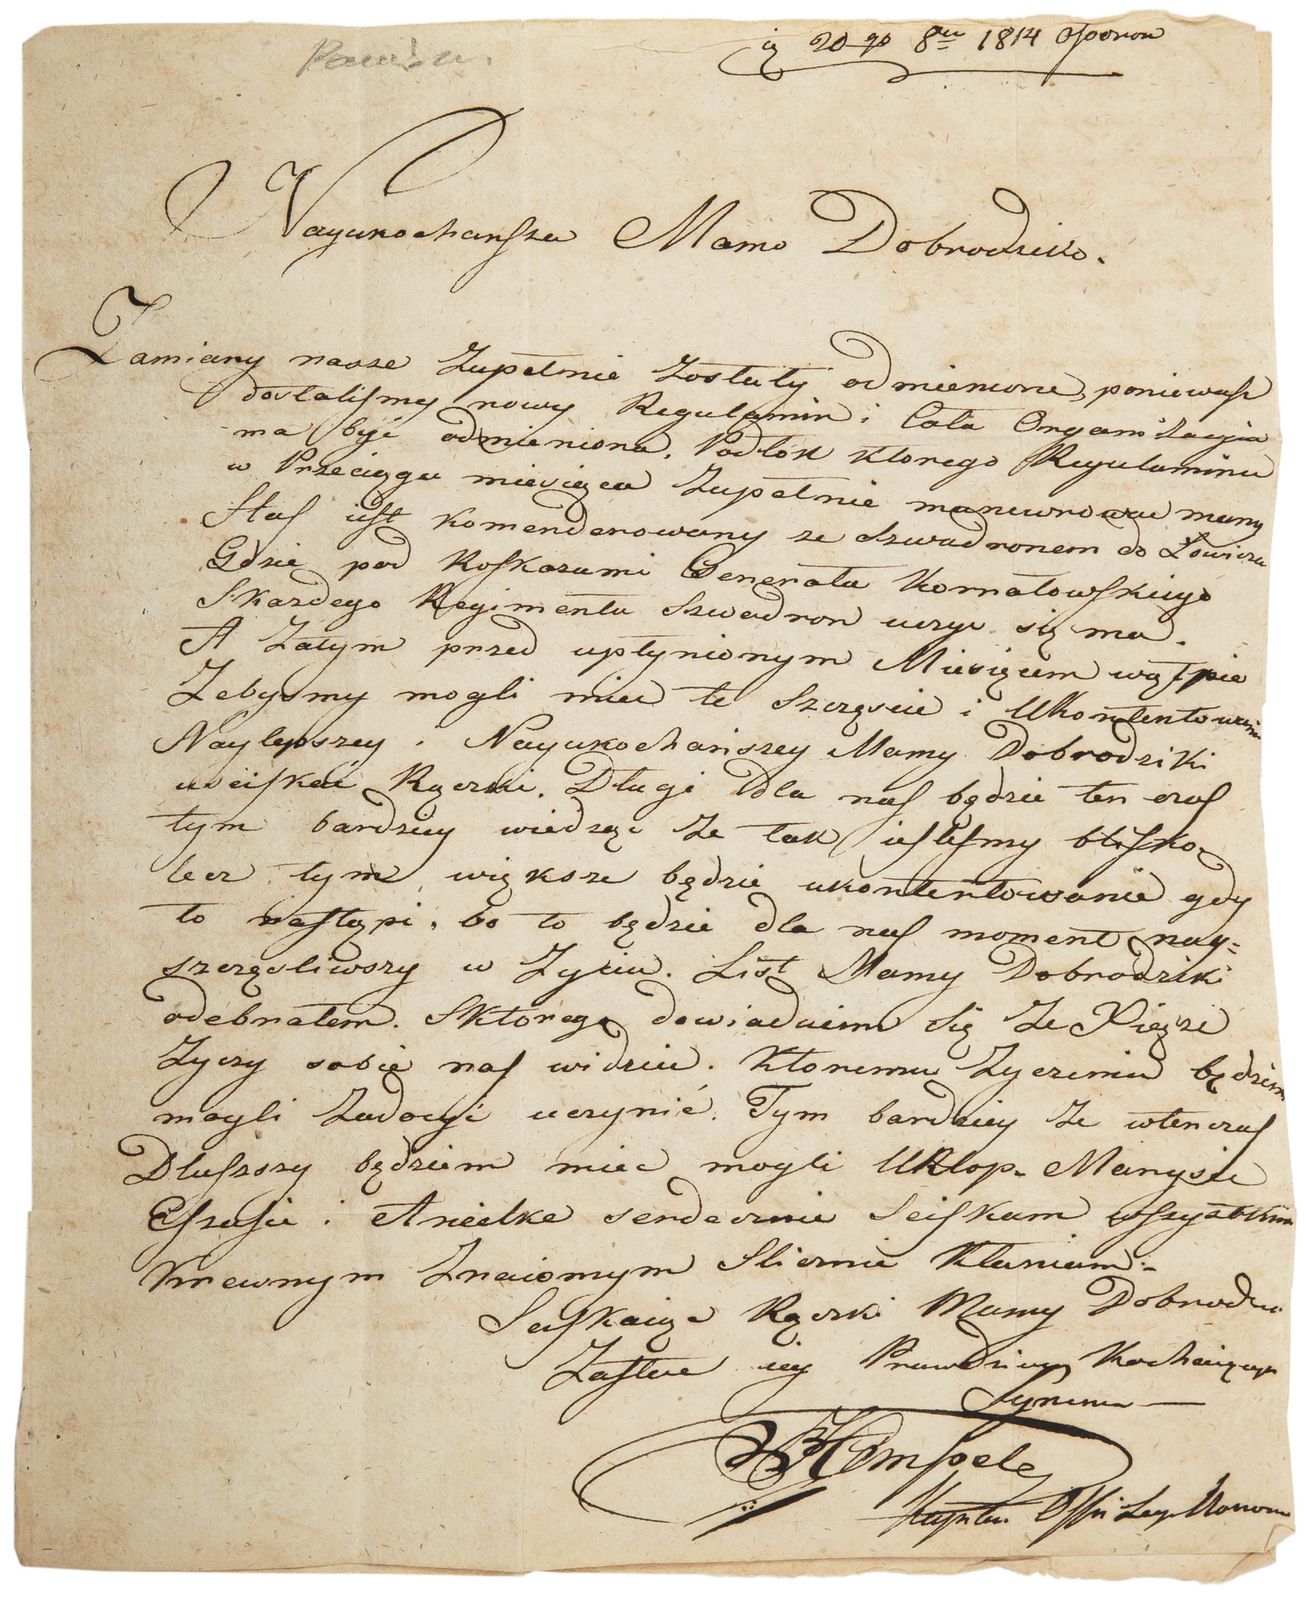 20 go 8bre 1814 Osporow
Nayukochansza Mamo Dobrodziko.
Zamiary nasze Zupełnie Zostały odmienione, poniewasz
dostaliśmy nowy Regulamin i Cała Organizacyia
ma być odmieniona. Podłok ktorego Regulaminu
w Przeciągu miesiąca Zupełnie manewrować mamy
Staś iest komenderowany ze Szwadronem do Łowicza
Gdzie pod Roskazami Generała Kornatowskiego
Skazdego Regimentu Szwadron uczyc się ma.
A Zatym przed upłynionym Miesiącem wątpie
Zebysmy mogli miec te Szczęscie i Ukontentowanie
Naylepszey i Nayukochańszey Mamy Dobrodziki
usciskać Rączki. Długi dla nas będzie ten czas
tym bardziey wiedząc Ze tak iestesmy blisko,
lecz tym większe będzie ukontentowanie gdy
to nastąpi, bo to będzie dla nas moment nay=
szczęsliwszy w Zyciu. List Mamy Dobrodziki
odebrałem. Sktorego dowiaduiem się Ze Xiądz
Zyczy sobie nas widziec. Ktoremu Zyczeniu będziem
mogli Zadosyć uczynić. Tym bardziey Ze wtenczas
Dłuszszy będziem miec mogli Urlop. Marysie
i Anielke serdecznie Sciskam wszystkim
Krewnym Znaiomym Slicznie Kłaniam.
Sciskaiąc Rączki Mamy Dobrodziki
Zostaie iey Prawdziwy Kochaiącym
Synem
Hempele
Kapitan Offi Leg Honor